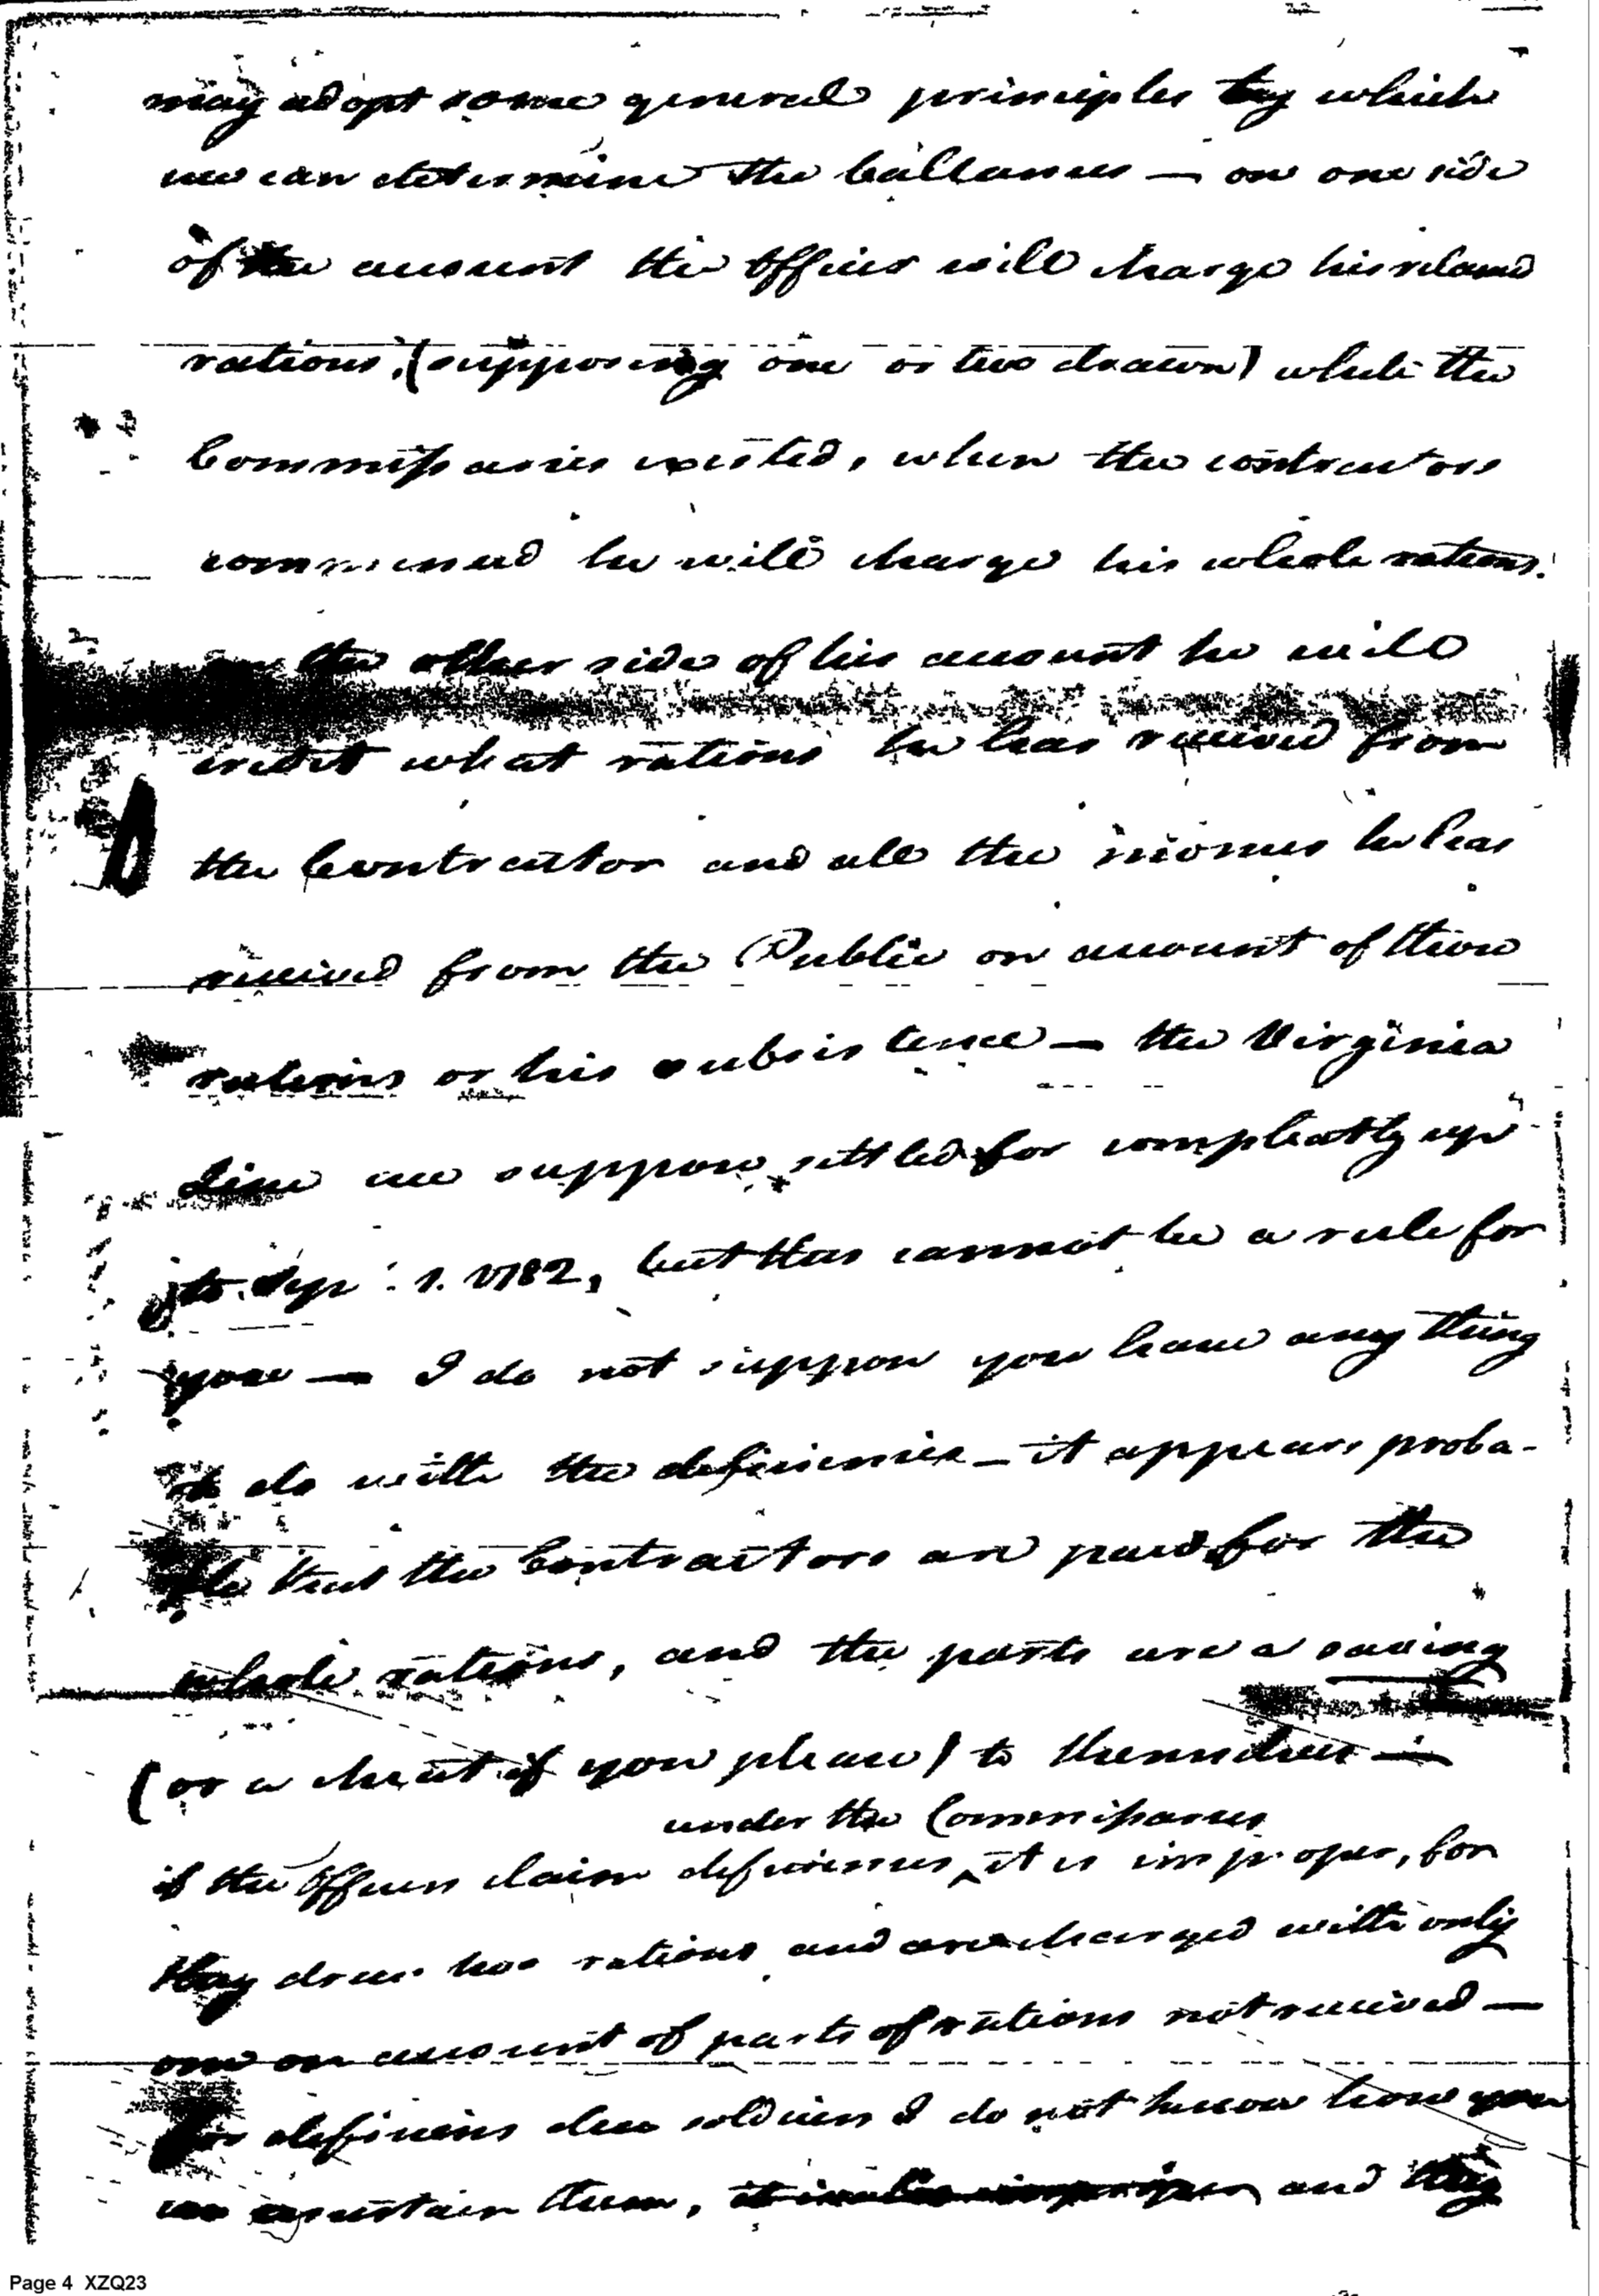 may adopt some general principles by which
we can determine the ballances — on one side
of the account the Officer will charge his
rations, (supposing one or two drawn) while the
Commissaries existed, when the contractors
commenced he will charge his whole rations.
on the other side of his account he will
credit what rations he has received from
the Contractor and all the monies he has
received from the Public on account of those
rations or his subsistence — the Virginia
Line are suppose settled for compleatly up
to Sepr. 1. 1782, but this cannot be a rule for
you — I do not suppose you have any thing
to do with the deficiencies — it appears proba-
ble that the Contractors are paid for the
whole rations, and the parts are a saving
(or a cheat if you please) to themselves —
under the Commissaries
if the Officers claim deficiencies ^ it is improper, for
they drew two rations and are charged with only
one on account of parts of rations not received —
for deficiencies due soldiers I do not know how you
can ascertain them, and they
Page 4 XZQ23